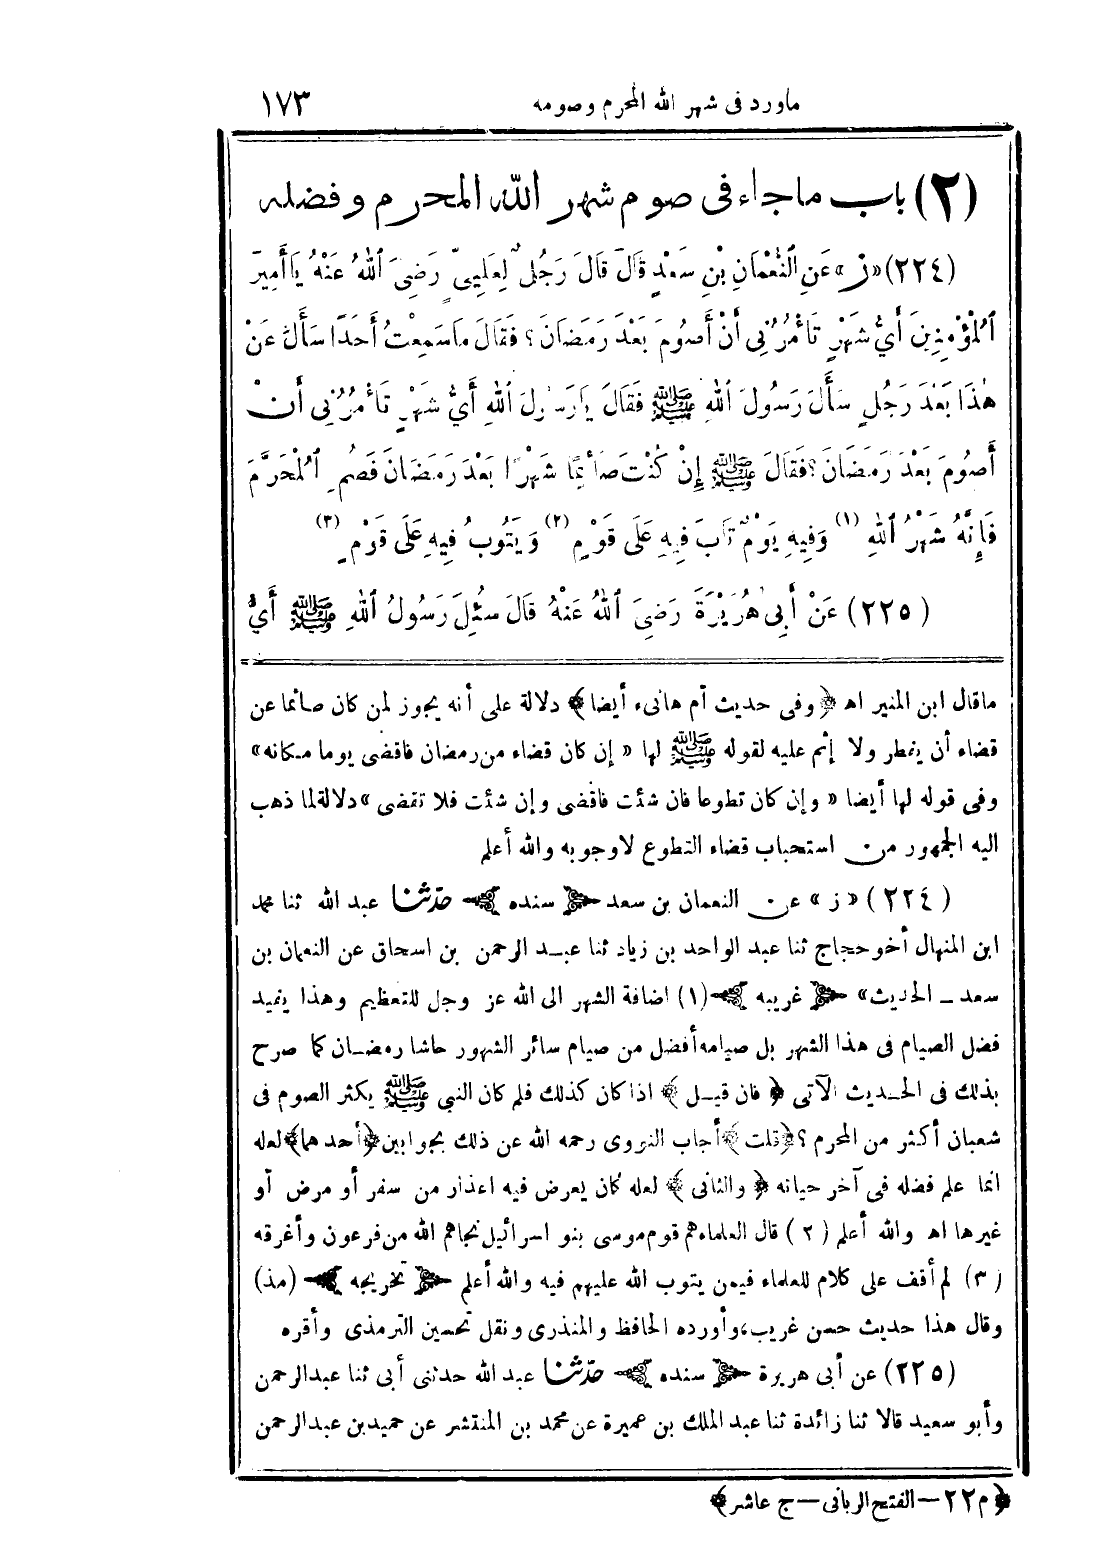 ماورد فى شهر الله المحرم وصومه ١٧٣
(٢) باب ماجاء فى صوم شهر الله المحرم وفضله
(٢٢٤) «ز» عَنِ النُّعْمَانِ بْنِ سَعْدٍ قَالَ قَالَ رَجُلٌ لِعَلِيٍّ رَضِيَ اللهُ عَنْهُ يَا أَمِيرَ
الْمُؤْمِنِينَ أَيُّ شَهْرٍ تَأْمُرُنِي أَنْ أَصُومَ بَعْدَ رَمَضَانَ؟ فَقَالَ مَا سَمِعْتُ أَحَدًا سَأَلَ عَنْ
هٰذَا بَعْدَ رَجُلٍ سَأَلَ رَسُولَ اللهِ ﷺ فَقَالَ يَا رَسُولَ اللهِ أَيُّ شَهْرٍ تَأْمُرُنِي أَنْ
أَصُومَ بَعْدَ رَمَضَانَ؟ فَقَالَ ﷺ إِنْ كُنْتَ صَائِمًا شَهْرًا بَعْدَ رَمَضَانَ فَصُمِ الْمُحَرَّمَ
فَإِنَّهُ شَهْرُ اللهِ (١) وَفِيهِ يَوْمٌ تَابَ فِيهِ عَلَى قَوْمٍ (٢) وَيَتُوبُ فِيهِ عَلَى قَوْمٍ (٣)
(٢٢٥) عَنْ أَبِي هُرَيْرَةَ رَضِيَ اللهُ عَنْهُ قَالَ سُئِلَ رَسُولُ اللهِ ﷺ أَيُّ
ماقال ابن المنير اه ﴿وفى حديث أم هانىء أيضا﴾ دلالة على أنه يجوز لمن كان صائما عن
قضاء أن يفطر ولا إثم عليه لقوله ﷺ لها « إن كان قضاء من رمضان فاقضى يوما مكانه»
وفى قوله لها أيضا « وإن كان تطوعا فان شئت فاقضى وإن شئت فلا تقضى » دلالة لما ذهب
اليه الجمهور من استحباب قضاء التطوع لاوجوبه والله أعلم
(٢٢٤) «ز» عن النعمان بن سعد ﴿سنده﴾ حدّثنا عبد الله ثنا محمد
ابن المنهال أخو حجاج ثنا عبد الواحد بن زياد ثنا عبد الرحمن بن اسحاق عن النعمان بن
سعد ـ الحديث» ﴿غريبه﴾ (١) اضافة الشهر الى الله عز وجل للتعظيم وهذا يفيد
فضل الصيام فى هذا الشهر بل صيامه أفضل من صيام سائر الشهور حاشا رمضان كما صرح
بذلك فى الحديث الآتى ﴿فان قيل﴾ اذا كان كذلك فلم كان النبى ﷺ يكثر الصوم فى
شعبان أكثر من المحرم ؟ ﴿قلت﴾ أجاب النووى رحمه الله عن ذلك بجوابين ﴿أحدهما﴾ لعله
انما علم فضله فى آخر حياته ﴿والثانى﴾ لعله كان يعرض فيه اعذار من سفر أو مرض أو
غيرها اه والله أعلم (٢) قال العلماء هم قوم موسى بنو اسرائيل نجاهم الله من فرعون وأغرقه
(٣) لم أقف على كلام للعلماء فيمن يتوب الله عليهم فيه والله أعلم ﴿تخريجه﴾ (مذ)
وقال هذا حديث حسن غريب، وأورده الحافظ والمنذرى ونقل تحسين الترمذى وأقره
(٢٢٥) عن أبى هريرة ﴿سنده﴾ حدّثنا عبد الله حدثنى أبى ثنا عبد الرحمن
وأبو سعيد قالا ثنا زائدة ثنا عبد الملك بن عميرة عن محمد بن المنتشر عن حميد بن عبد الرحمن
﴿م ٢٢ — الفتح الربانى — ج عاشر﴾